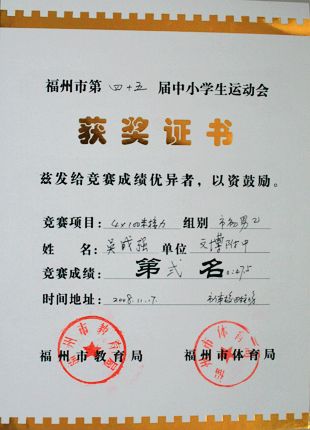 福州市第四十五届中小学生运动会
获奖证书
兹发给竞赛成绩优异者，以资鼓励。
竞赛项目：4×100米接力 组别 市初男乙
姓名：吴成强 单位 文博附中
竞赛成绩：第贰名
时间地址：2008.11.17.
福州市教育局 福州市体育局
福州市教育局
福州市体育局